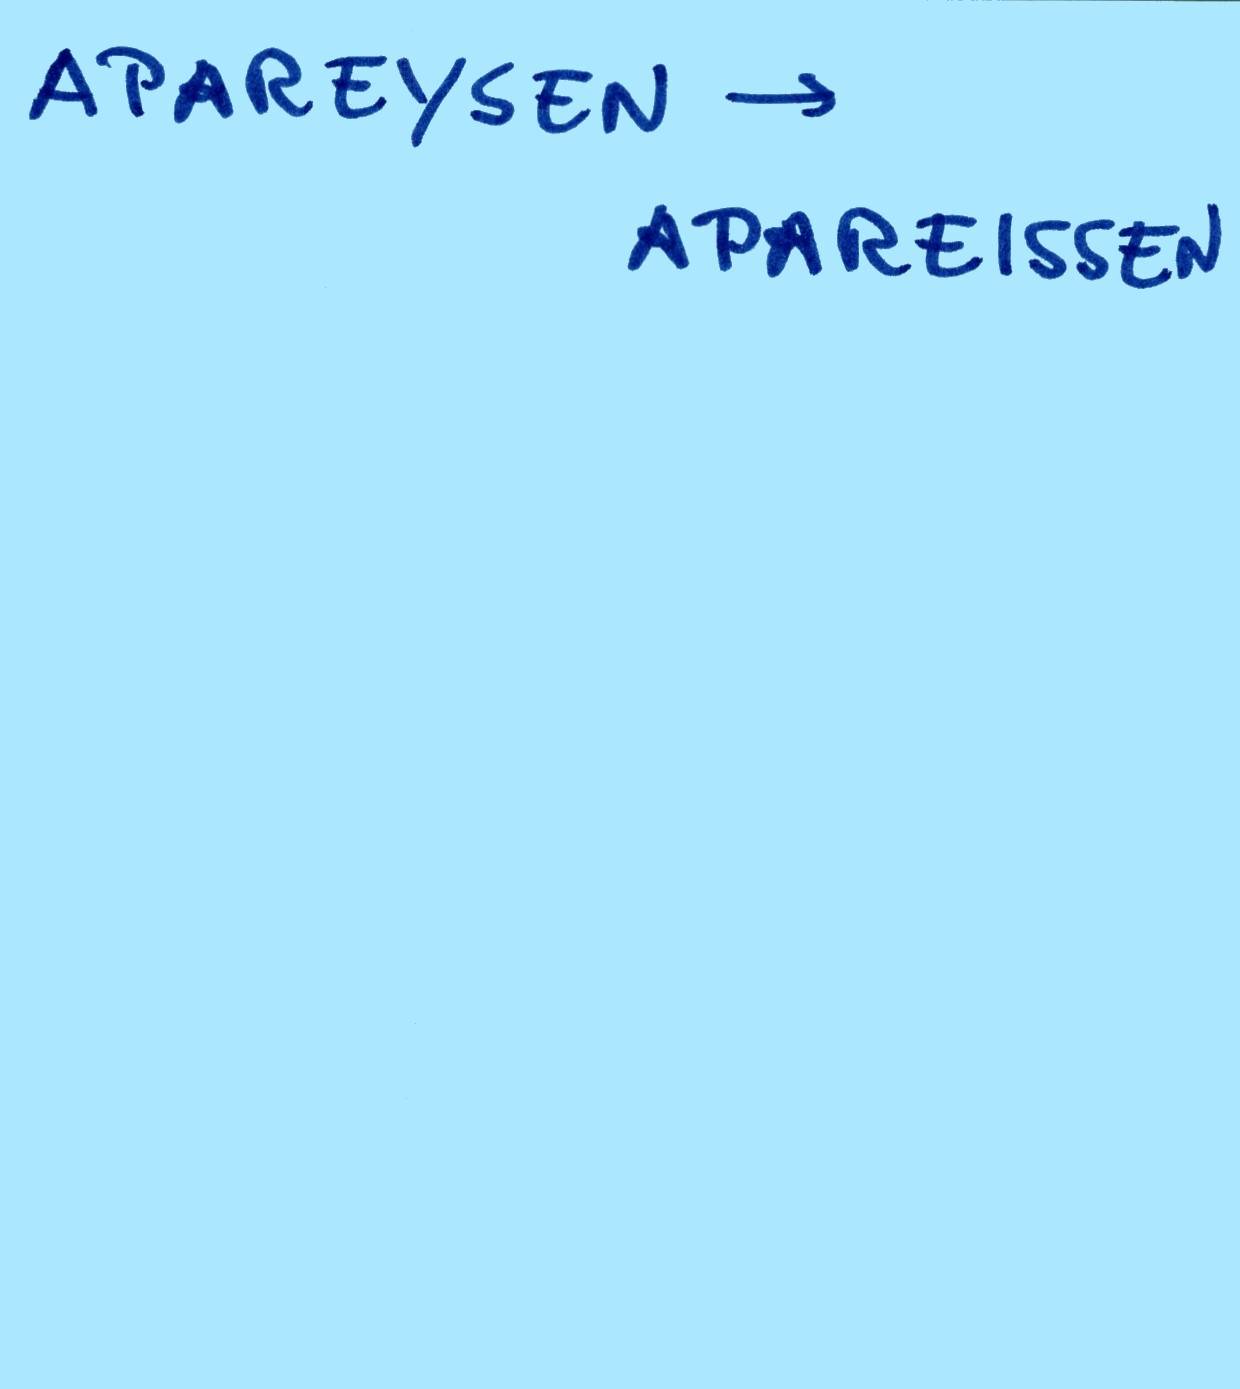 APAREYSEN →
APAREISSEN